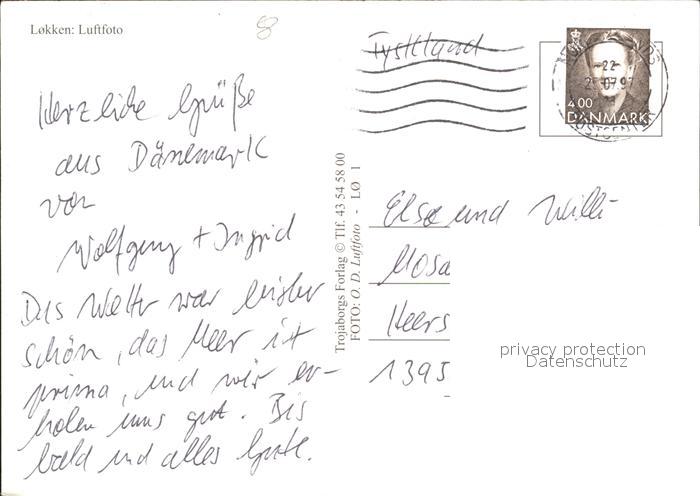 Løkken: Luftfoto
8
Tyskland
22
07.97
4.00
DANMARK
Herzliche Grüße
aus Dänemark
von
Wolfgang + Ingrid
Das Wetter war bisher
schön, das Meer ist
prima, und wir er-
holen uns gut. Bis
bald und alles Gute.
Trojaborgs Forlag © Tlf. 43 54 58 00
FOTO: O. D. Luftfoto - LØ 1
Else und Willi
Mosa
Heers
1395
privacy protection
Datenschutz